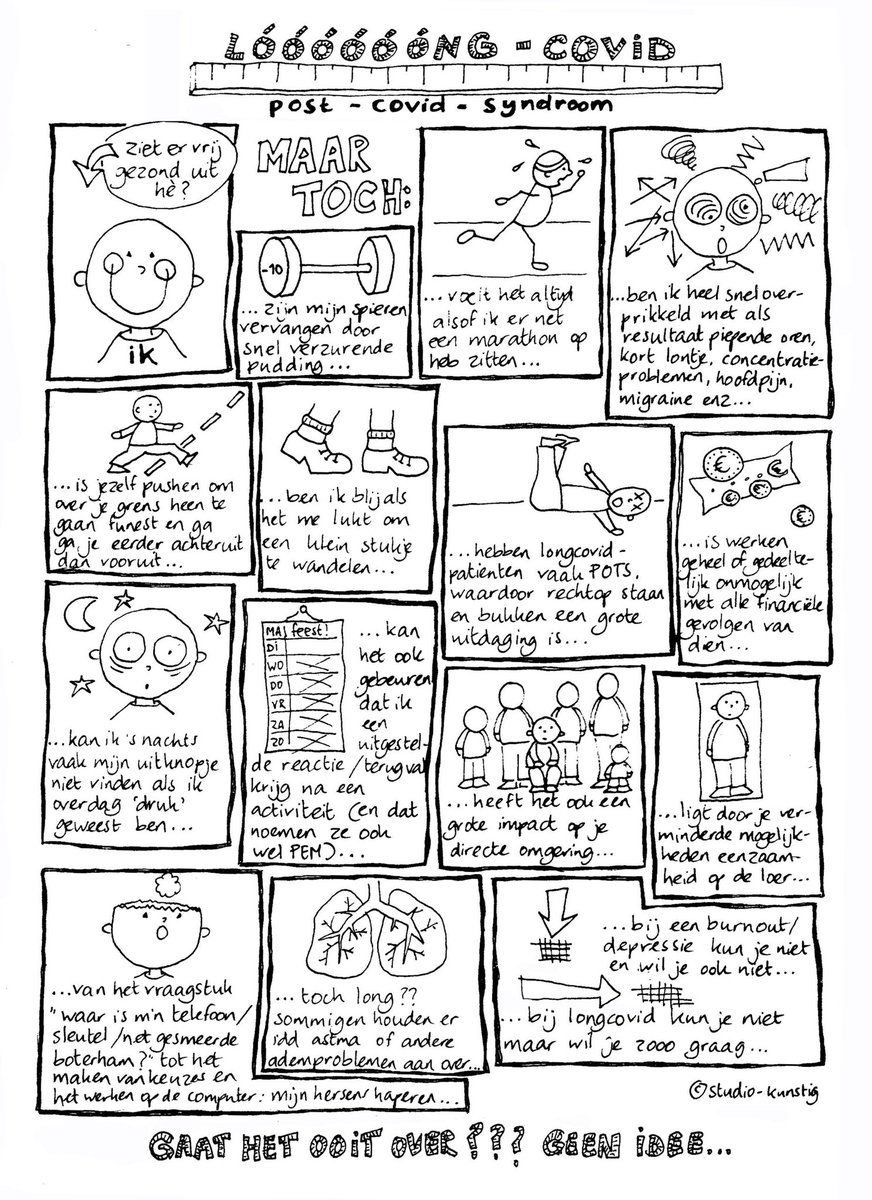 LÓÓÓÓÓÓNG-COVID
post-covid-syndroom
ziet er vrij
gezond uit
hè?
ik
MAAR
TOCH:
-10
...zijn mijn spieren
vervangen door
snel verzurende
pudding...
...voelt het altijd
alsof ik er net
een marathon op
heb zitten...
...ben ik heel snel over-
prikkeld met als
resultaat piepende oren,
kort lontje, concentratie-
problemen, hoofdpijn,
migraine enz...
...is jezelf pushen om
over je grens heen te
gaan funest en ga
ga je eerder achteruit
dan vooruit...
...ben ik blij als
het me lukt om
een klein stukje
te wandelen...
...hebben longcovid-
patiënten vaak POTS,
waardoor rechtop staan
en bukken een grote
uitdaging is...
€
€
€
€
...is werken
geheel of gedeelte-
lijk onmogelijk
met alle financiële
gevolgen van
dien...
...kan ik 's nachts
vaak mijn uitknopje
niet vinden als ik
overdag 'druk'
geweest ben...
MA feest!
DI
WO
DO
VR
ZA
ZO
...kan
het ook
gebeuren
dat ik
een
uitgestel-
de reactie/terugval
krijg na een
activiteit (en dat
noemen ze ook
wel PEM)...
...heeft het ook een
grote impact op je
directe omgeving...
...ligt door je ver-
minderde mogelijk-
heden eenzaam-
heid op de loer...
...van het vraagstuk
"waar is m'n telefoon/
sleutel/net gesmeerde
boterham?" tot het
maken van keuzes en
het werken op de computer: mijn hersens haperen...
...toch long??
Sommigen houden er
idd astma of andere
ademproblemen aan over...
...bij een burnout/
depressie kun je niet
en wil je ook niet...
...bij longcovid kun je niet
maar wil je zooo graag...
©studio-kunstig
GAAT HET OOIT OVER??? GEEN IDEE...